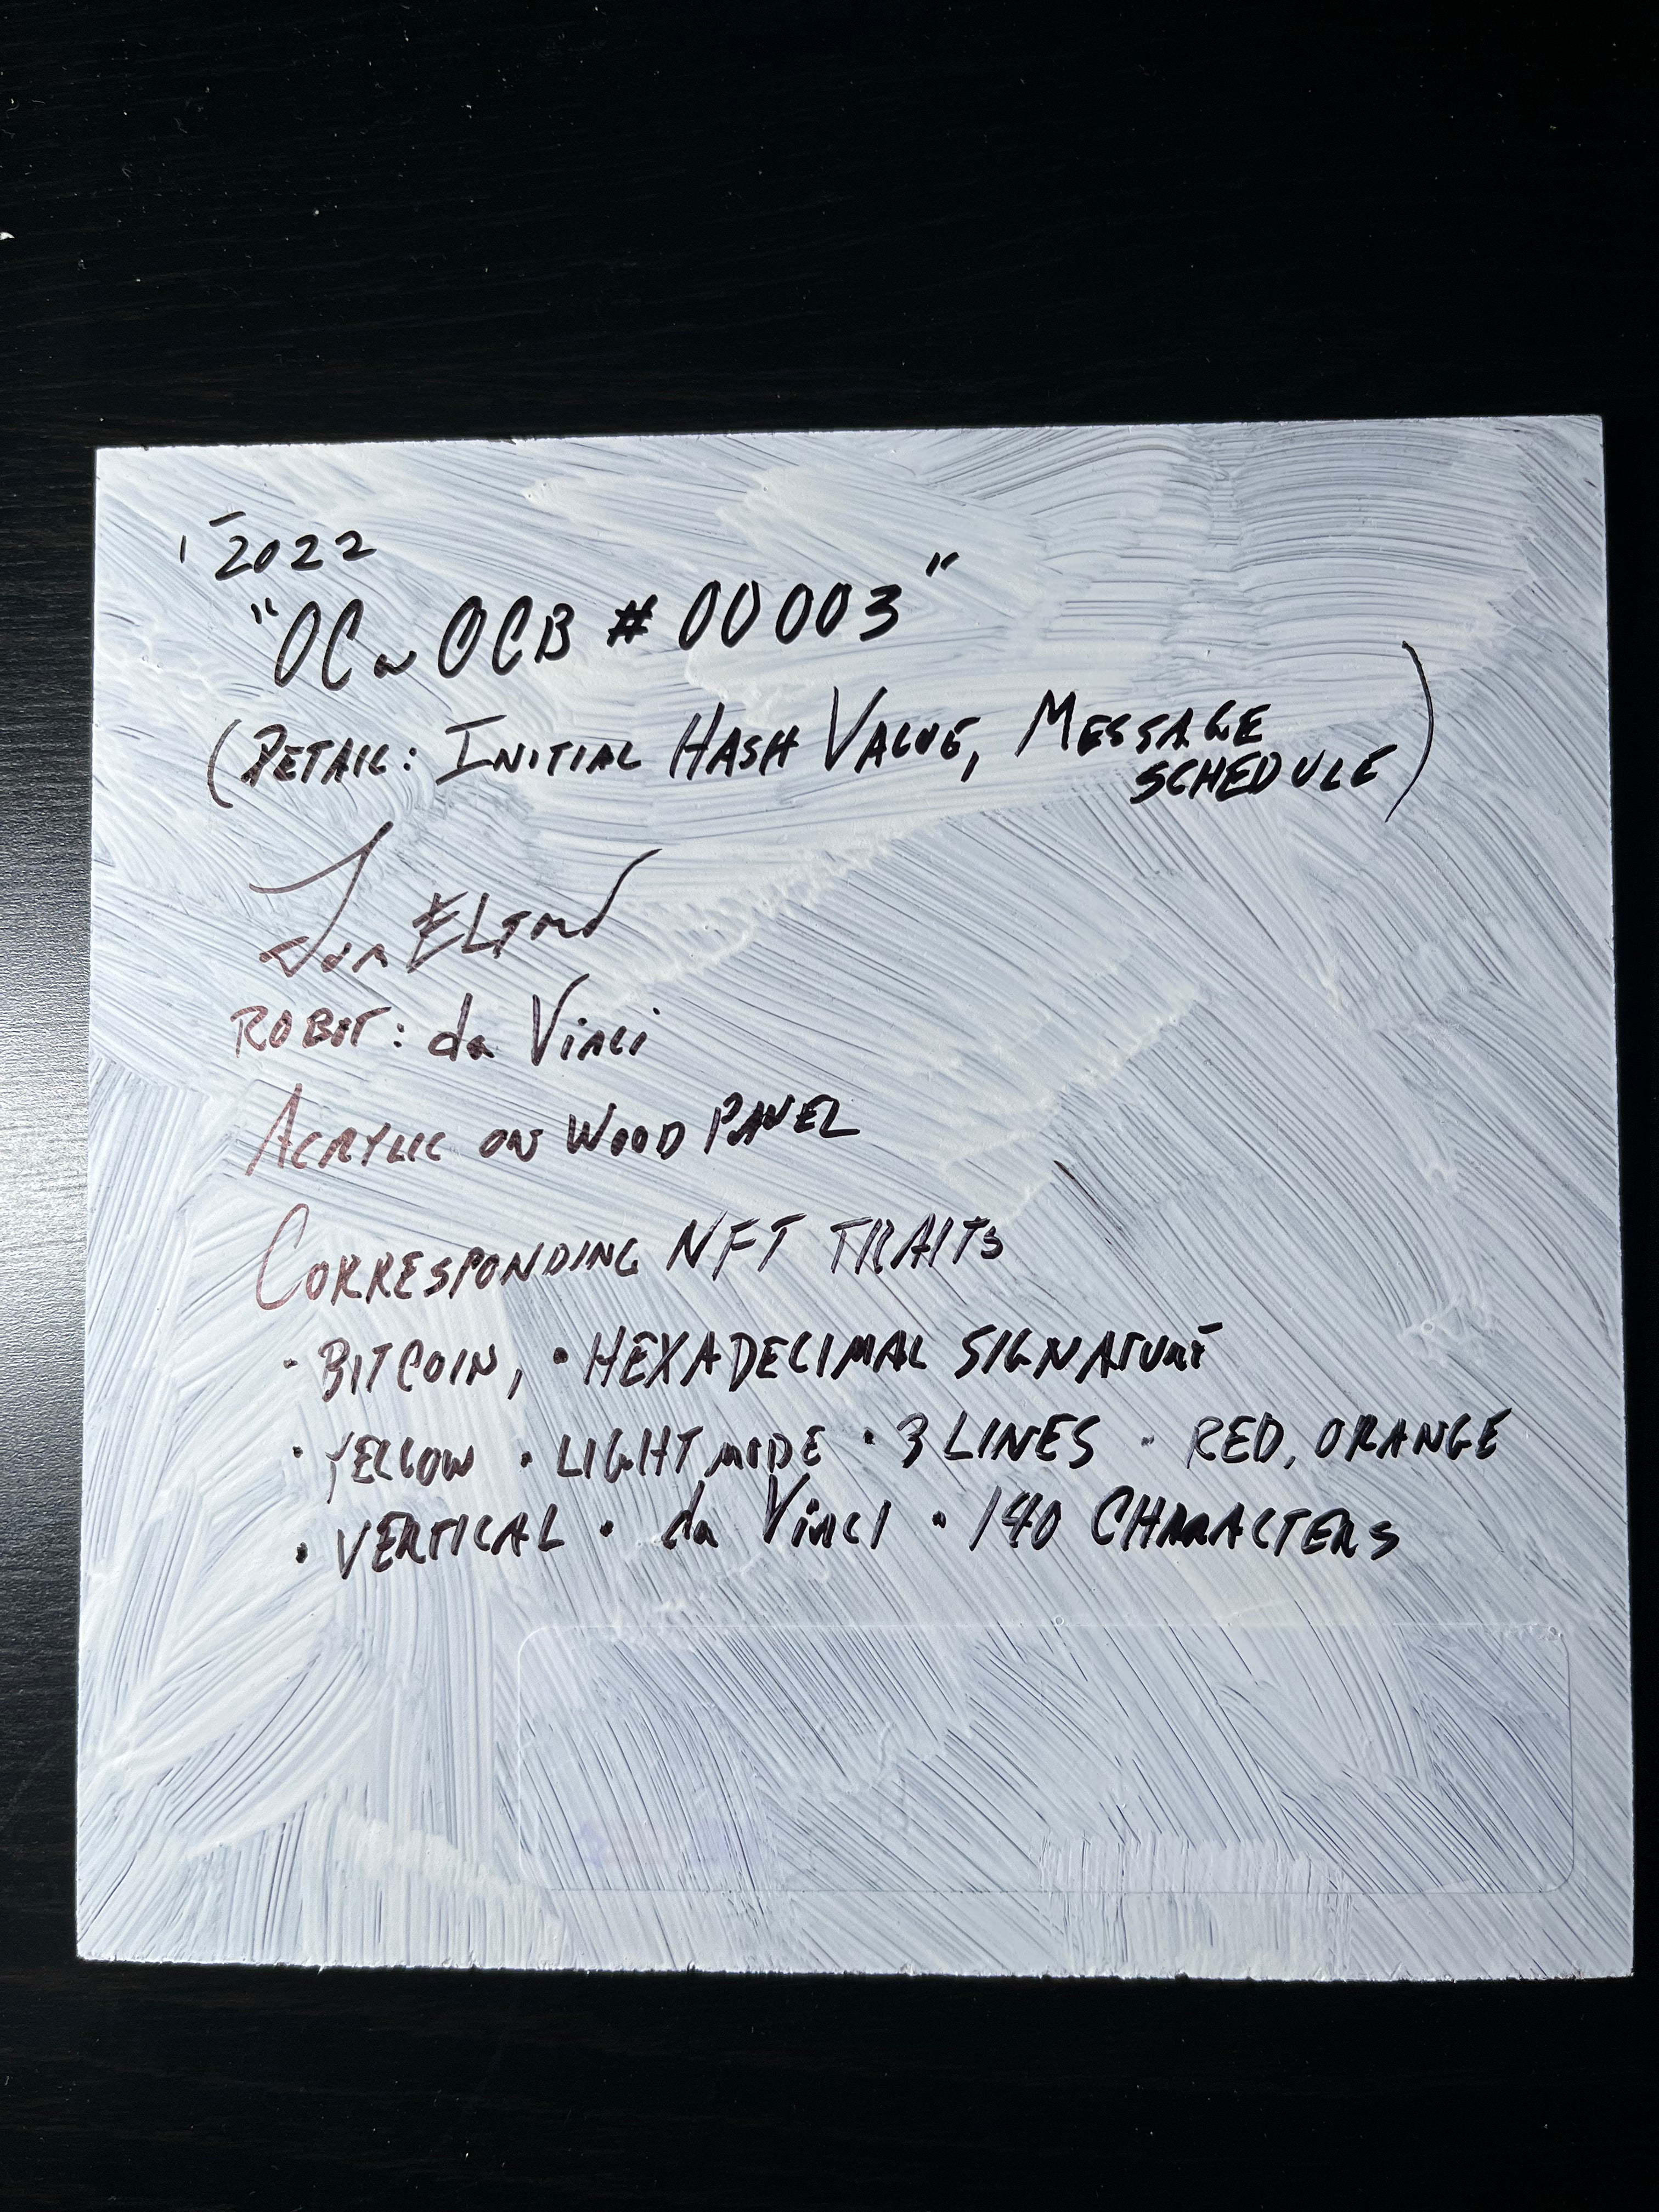 2022
"OC~OCB #00003"
(DETAIL: INITIAL HASH VALUE, MESSAGE
SCHEDULE)
ELTMN
ROBOT: da Vinci
ACRYLIC ON WOOD PANEL
CORRESPONDING NFT TRAITS
· BITCOIN, · HEXADECIMAL SIGNATURE
· YELLOW · LIGHT MODE · 3 LINES · RED, ORANGE
· VERTICAL · da Vinci · 140 CHARACTERS